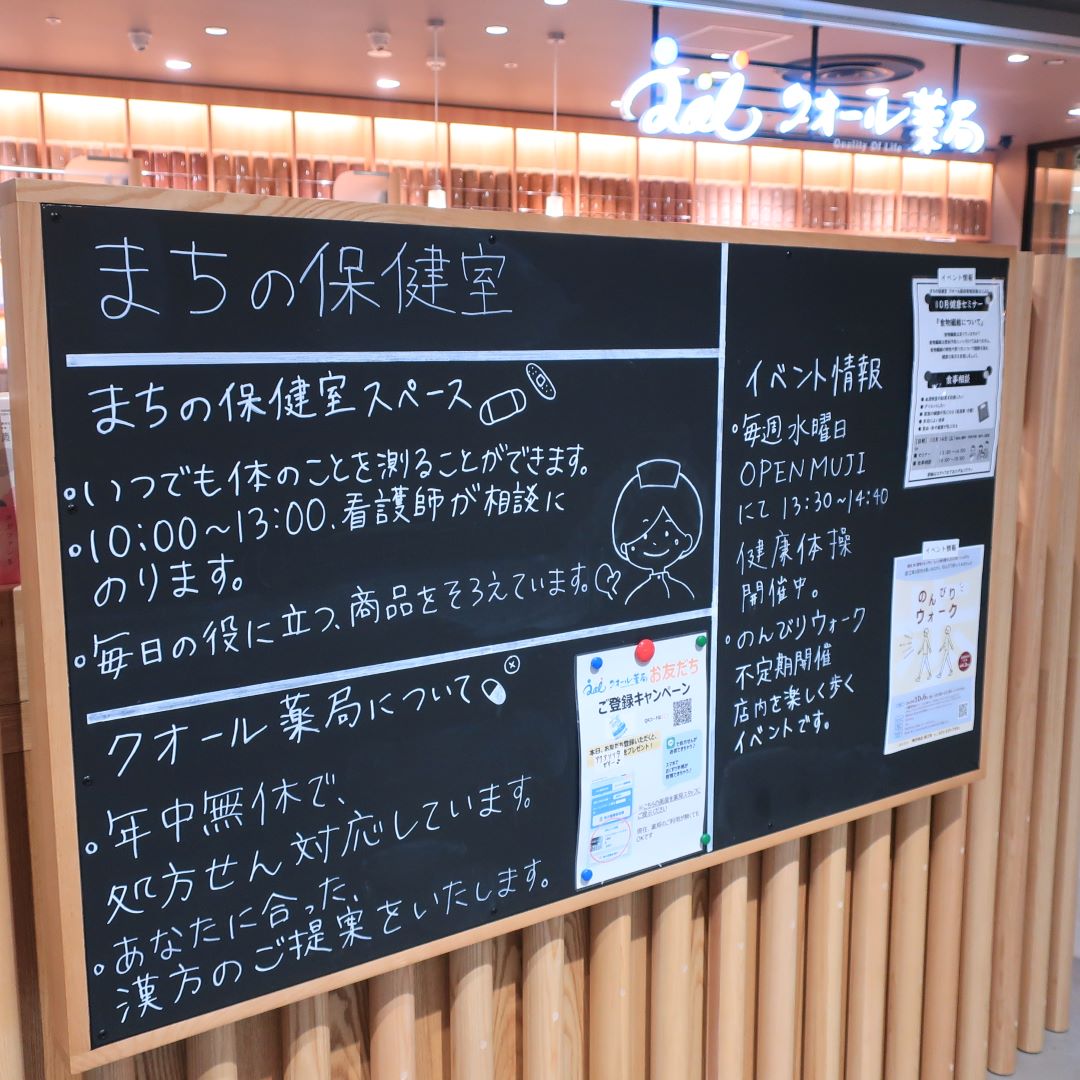 クオール薬局
Quality Of Life
まちの保健室
まちの保健室スペース
いつでも体のことを測ることができます。
10:00~13:00、看護師が相談に
のります。
毎日の役に立つ、商品をそろえています。
クオール薬局について
年中無休で、
処方せん対応しています。
あなたに合った、
漢方のご提案をいたします。
クオール薬局 お友だち
ご登録キャンペーン
本日、お友だち登録いただくと、
をプレゼント!
OKです
イベント情報
毎週水曜日
OPEN MUJI
にて 13:30~14:40
健康体操
開催中。
のんびりウォーク
不定期開催
店内を楽しく歩く
イベントです。
イベント情報
10月健康セミナー
『食物繊維について』
食事相談
イベント情報
のんびりと
ウォーク